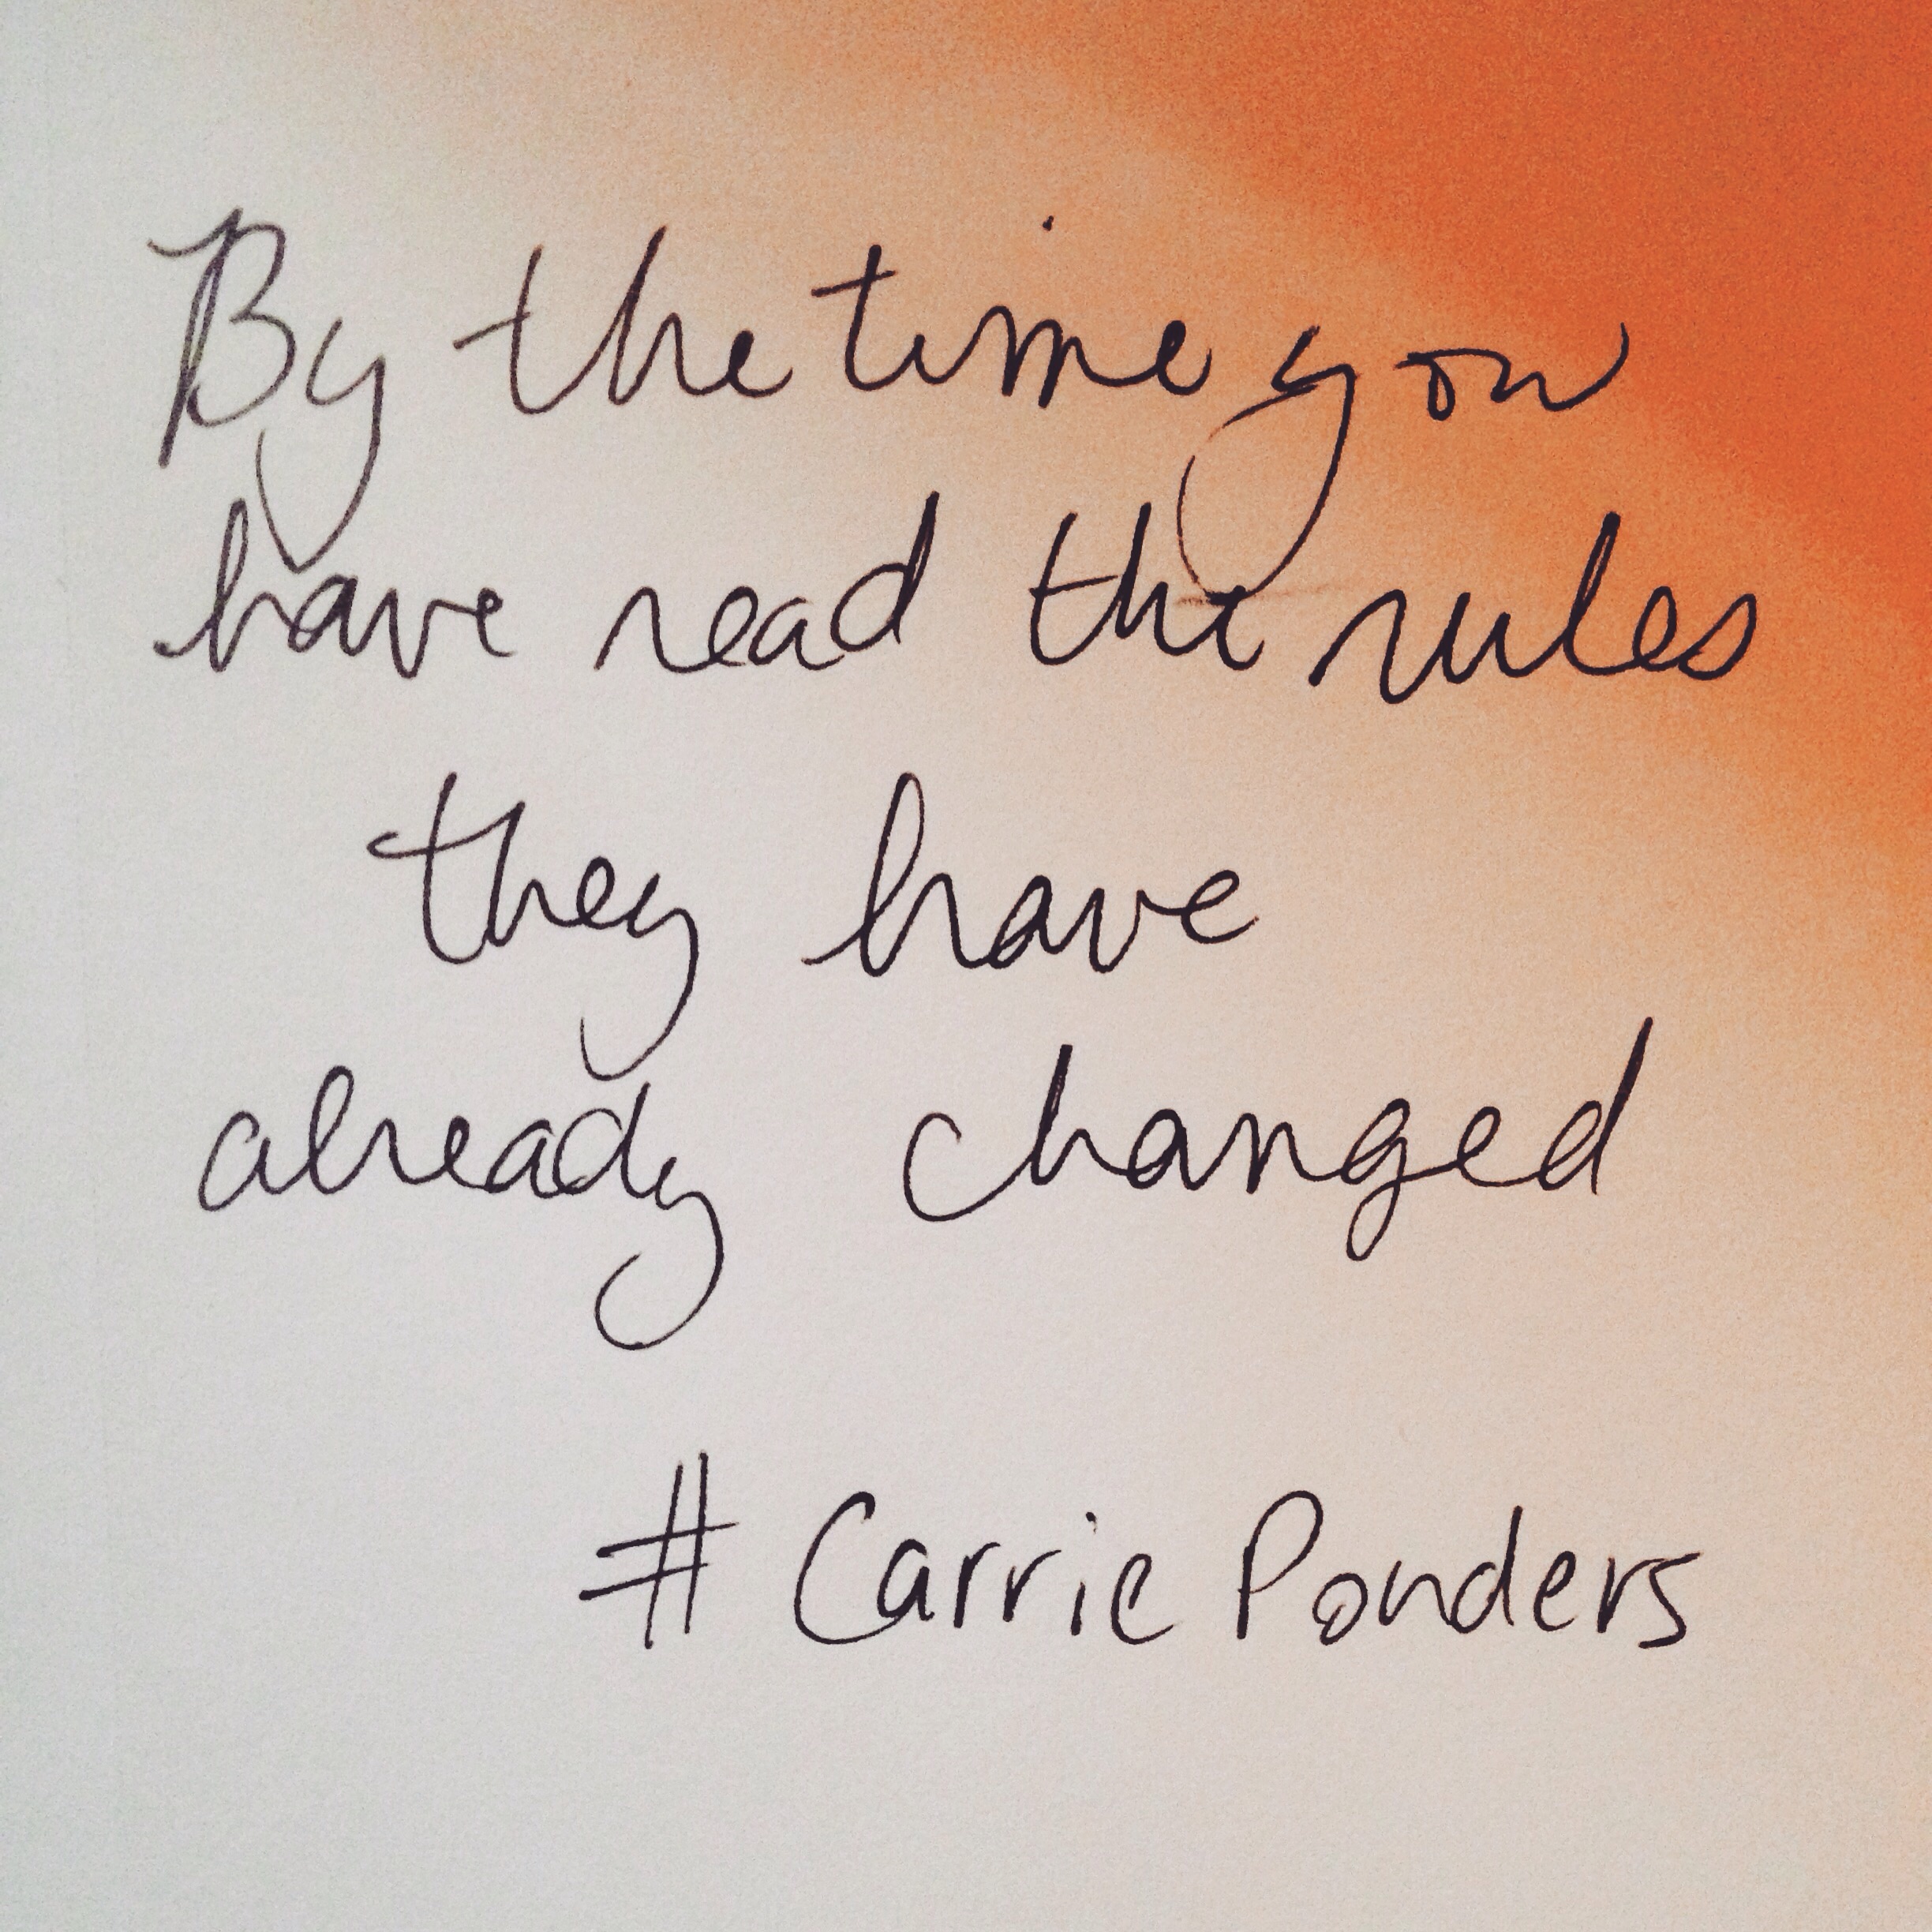 By the time you
have read the rules
they have
already changed
# Carrie Ponders